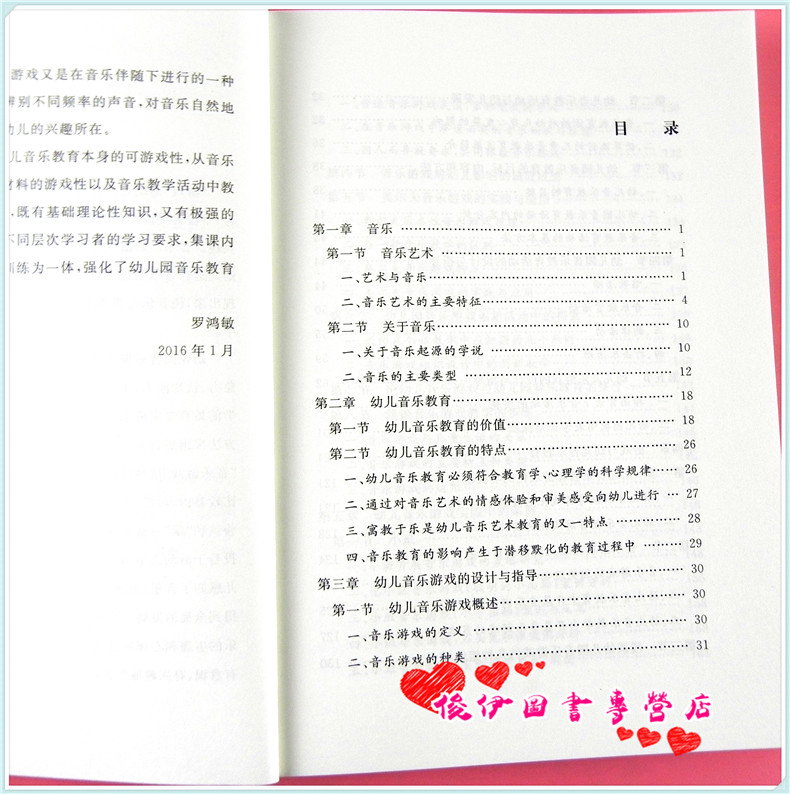 游戏又是在音乐伴随下进行的一种
辨别不同频率的声音，对音乐自然地
幼儿的兴趣所在。
儿音乐教育本身的可游戏性，从音乐
材料的游戏性以及音乐教学活动中教
，既有基础理论性知识，又有极强的
不同层次学习者的学习要求，集课内
训练为一体，强化了幼儿园音乐教育
罗鸿敏
2016年1月
目 录
第一章 音乐 …… 1
第一节 音乐艺术 …… 1
一、艺术与音乐 …… 1
二、音乐艺术的主要特征 …… 4
第二节 关于音乐 …… 10
一、关于音乐起源的学说 …… 10
二、音乐的主要类型 …… 12
第二章 幼儿音乐教育 …… 18
第一节 幼儿音乐教育的价值 …… 18
第二节 幼儿音乐教育的特点 …… 26
一、幼儿音乐教育必须符合教育学、心理学的科学规律 …… 26
二、通过对音乐艺术的情感体验和审美感受向幼儿进行 … 27
三、寓教于乐是幼儿音乐艺术教育的又一特点 …… 28
四、音乐教育的影响产生于潜移默化的教育过程中 …… 29
第三章 幼儿音乐游戏的设计与指导 …… 30
第一节 幼儿音乐游戏概述 …… 30
一、音乐游戏的定义 …… 30
二、音乐游戏的种类 …… 31
俊伊图書專營店